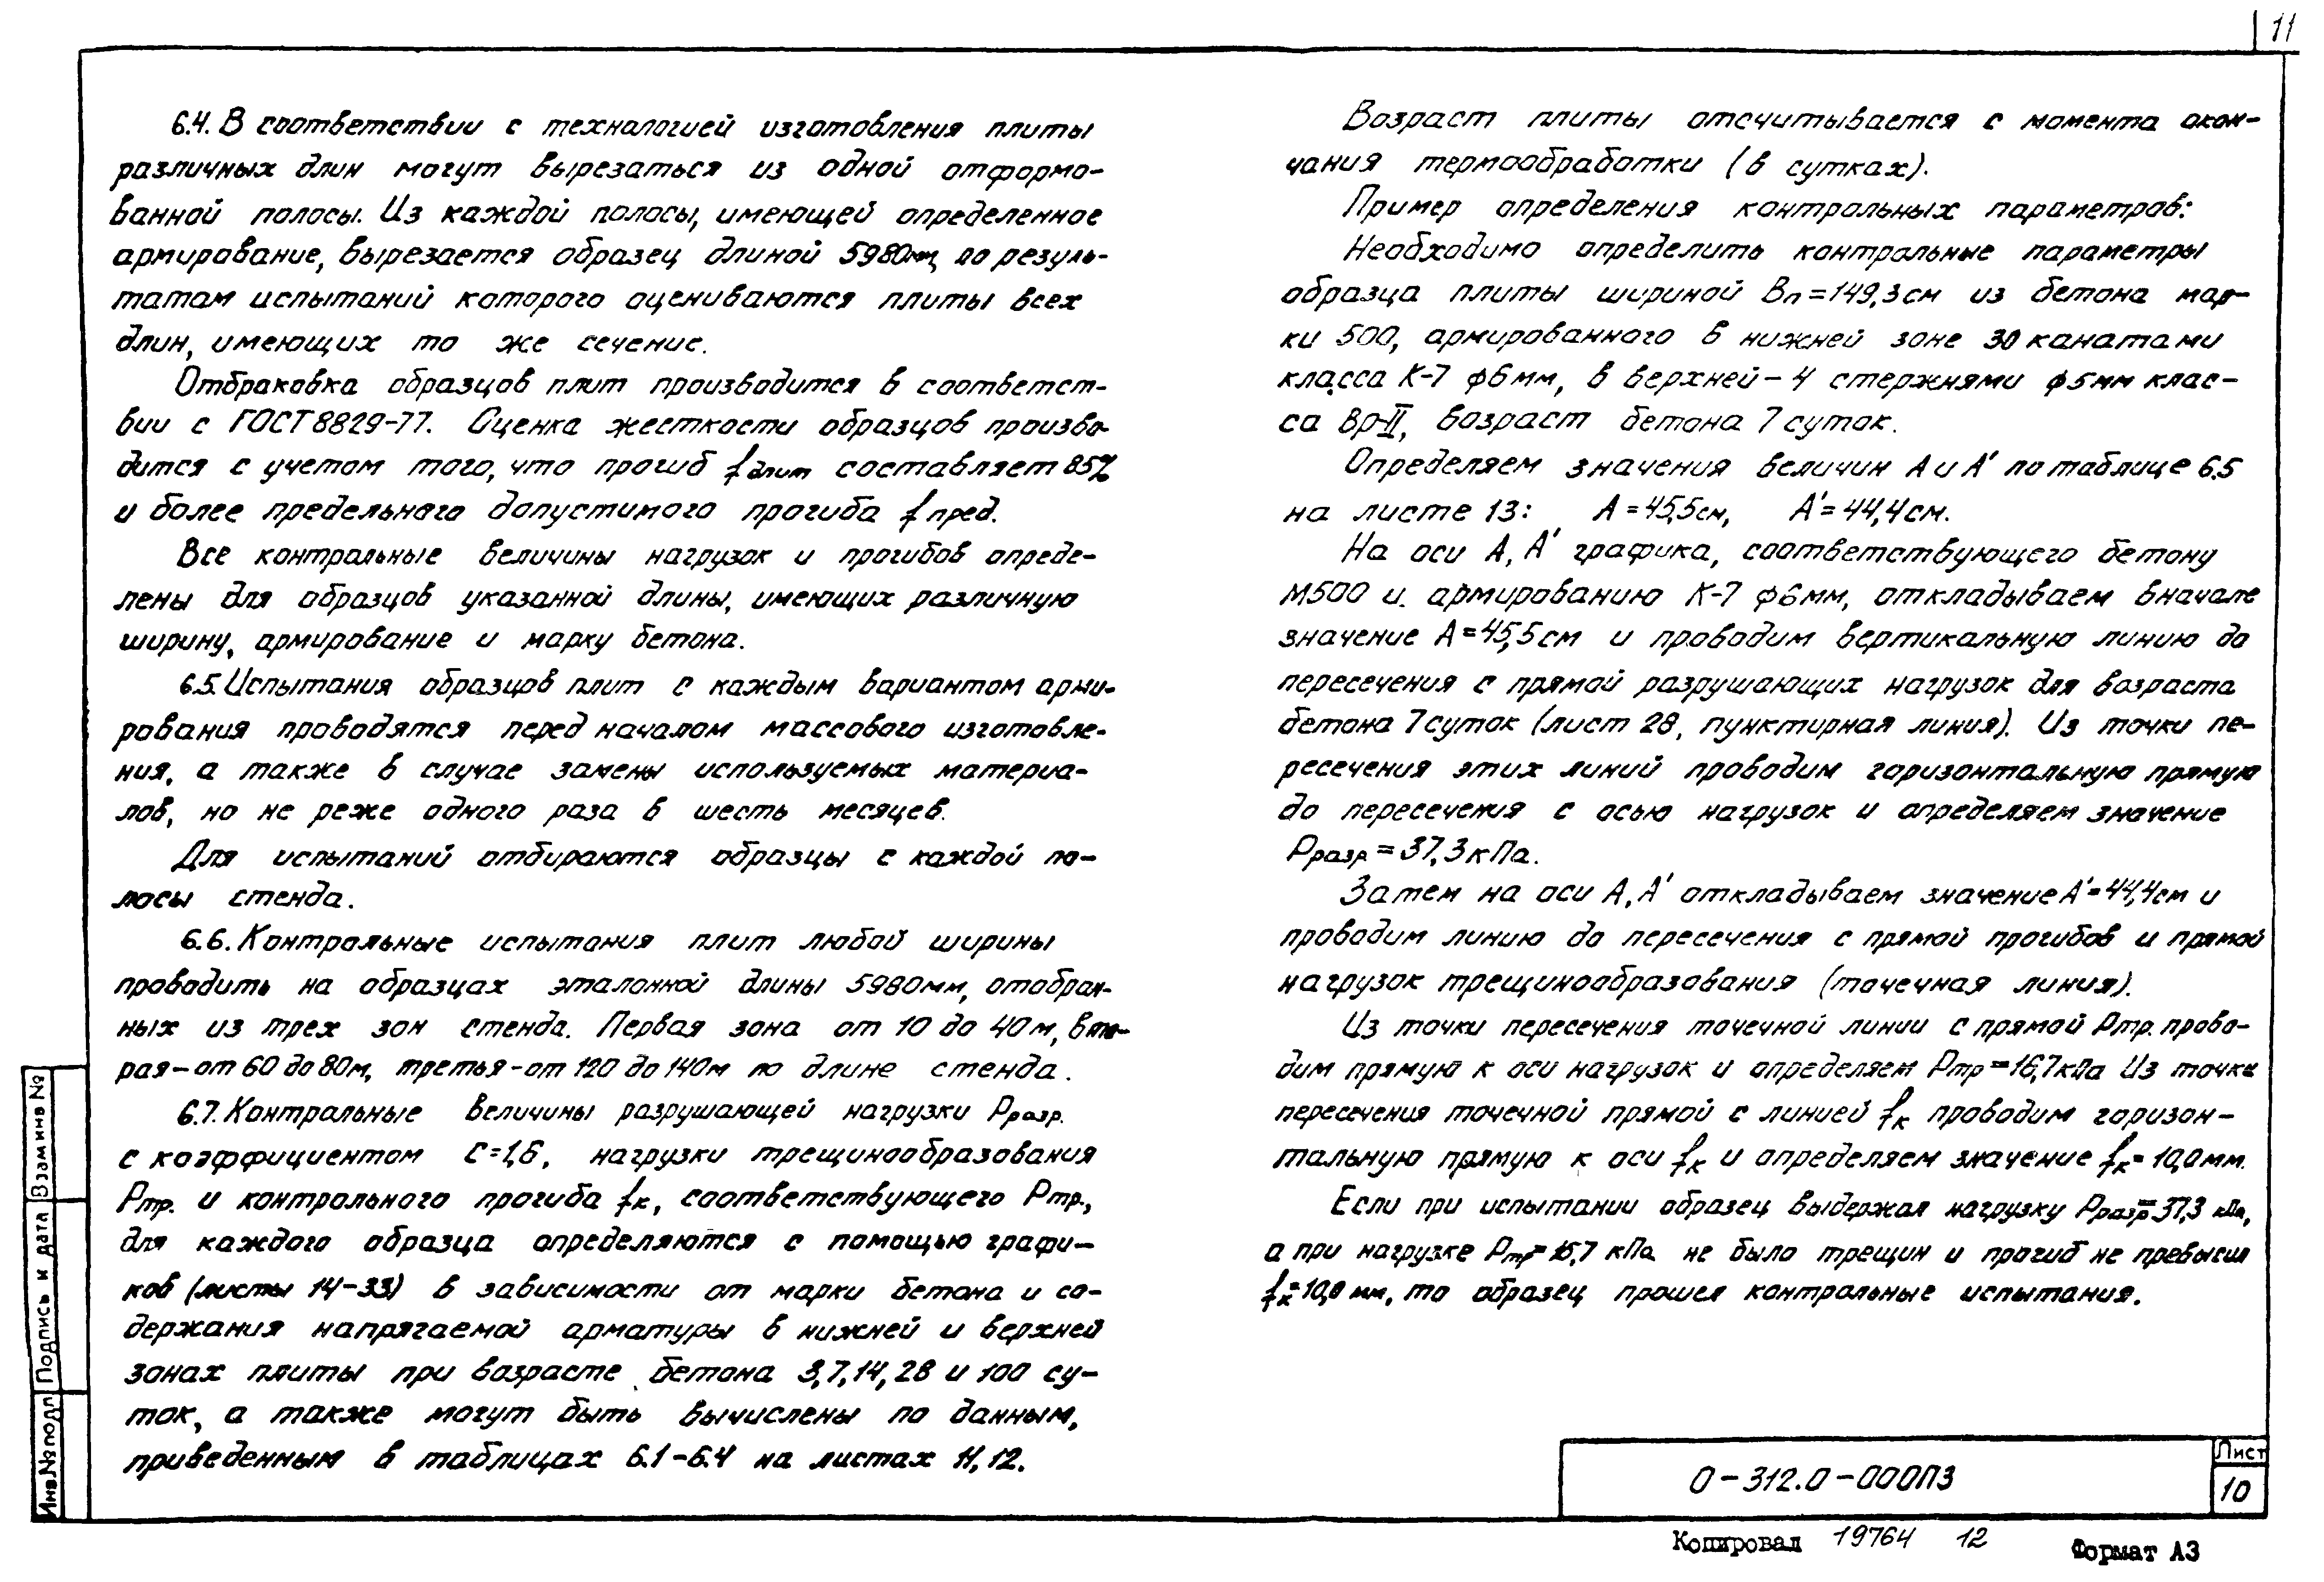 11
6.4. В соответствии с технологией изготовления плиты
различных длин могут вырезаться из одной отформо-
ванной полосы. Из каждой полосы, имеющей определенное
армирование, вырезается образец длиной 5980мм, по резуль-
татам испытаний которого оцениваются плиты всех
длин, имеющих то же сечение.
Отбраковка образцов плит производится в соответст-
вии с ГОСТ 8829-77. Оценка жесткости образцов произво-
дится с учетом того, что прогиб fдлит составляет 85%
и более предельного допустимого прогиба fпред.
Все контрольные величины нагрузок и прогибов опреде-
лены для образцов указанной длины, имеющих различную
ширину, армирование и марку бетона.
6.5. Испытания образцов плит с каждым вариантом арми-
рования проводятся перед началом массового изготовле-
ния, а также в случае замены используемых материа-
лов, но не реже одного раза в шесть месяцев.
Для испытаний отбираются образцы с каждой по-
лосы стенда.
6.6. Контрольные испытания плит любой ширины
проводить на образцах эталонной длины 5980мм, отобран-
ных из трех зон стенда. Первая зона от 10 до 40м, вто-
рая-от 60 до 80м, третья-от 120 до 140м по длине стенда.
6.7. Контрольные величины разрушающей нагрузки Рразр.
с коэффициентом С=1,6, нагрузки трещинообразования
Ртр. и контрольного прогиба fк, соответствующего Ртр.,
для каждого образца определяются с помощью графи-
ков (листы 14-33) в зависимости от марки бетона и со-
держания напрягаемой арматуры в нижней и верхней
зонах плиты при возрасте бетона 3,7,14,28 и 100 су-
ток, а также могут быть вычислены по данным,
приведенным в таблицах 6.1-6.4 на листах 11,12.
Возраст плиты отсчитывается с момента окон-
чания термообработки (в сутках).
Пример определения контрольных параметров:
Необходимо определить контрольные параметры
образца плиты шириной Вп=149,3см из бетона мар-
ки 500, армированного в нижней зоне 30 канатами
класса К-7 ф6мм, в верхней-4 стержнями ф5мм клас-
са Вр-II, возраст бетона 7 суток.
Определяем значения величин А и А' по таблице 6.5
на листе 13: А=45,5см, А'=44,4см.
На оси А, А' графика, соответствующего бетону
М500 и армированию К-7 ф6мм, откладываем вначале
значение А=45,5см и проводим вертикальную линию до
пересечения с прямой разрушающих нагрузок для возраста
бетона 7суток (лист 28, пунктирная линия). Из точки пе-
ресечения этих линий проводим горизонтальную прямую
до пересечения с осью нагрузок и определяем значение
Рразр=37,3кПа.
Затем на оси А,А' откладываем значение А'=44,4см и
проводим линию до пересечения с прямой прогибов и прямой
нагрузок трещинообразования (точечная линия).
Из точки пересечения точечной линии с прямой Ртр. прово-
дим прямую к оси нагрузок и определяем Ртр=16,7кПа Из точки
пересечения точечной прямой с линией fк проводим горизон-
тальную прямую к оси fк и определяем значение fк=10,0мм.
Если при испытании образец выдержал нагрузку Рразр=37,3 кПа,
а при нагрузке Ртр=16,7 кПа не было трещин и прогиб не превысил
fк=10,0 мм, то образец прошел контрольные испытания.
Взам инв №
Подпись и дата
Инв.№ подл
0-312.0-000ПЗ
Лист
10
Копировал 19764 12
Формат А3